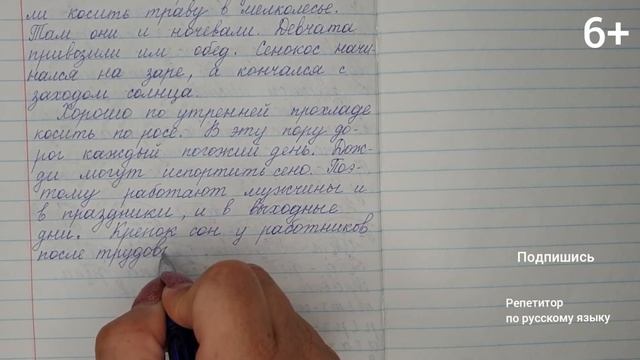 ли косить траву в мелколесье.
Там они и ночевали. Девчата
привозили им обед. Сенокос начи-
нался на заре, а кончался с
заходом солнца.
Хорошо по утренней прохладе
косить по росе. В эту пору до-
рог каждый погожий день. Дож-
ди могут испортить сено. Поэ-
тому работают мужчины и
в праздники, и в выходные
дни. Крепок сон у работников
после трудов
6+
Подпишись
Репетитор
по русскому языку